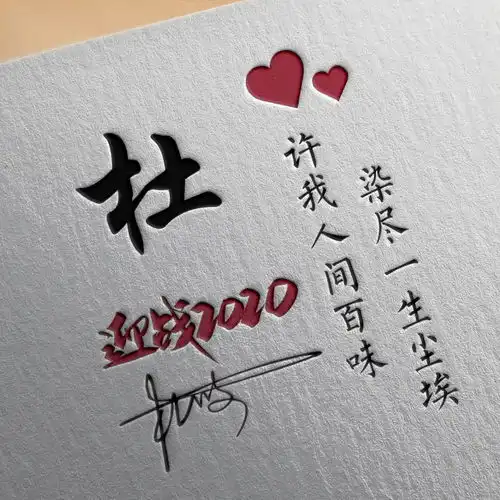 杜
迎战2020
许我人间百味
染尽一生尘埃